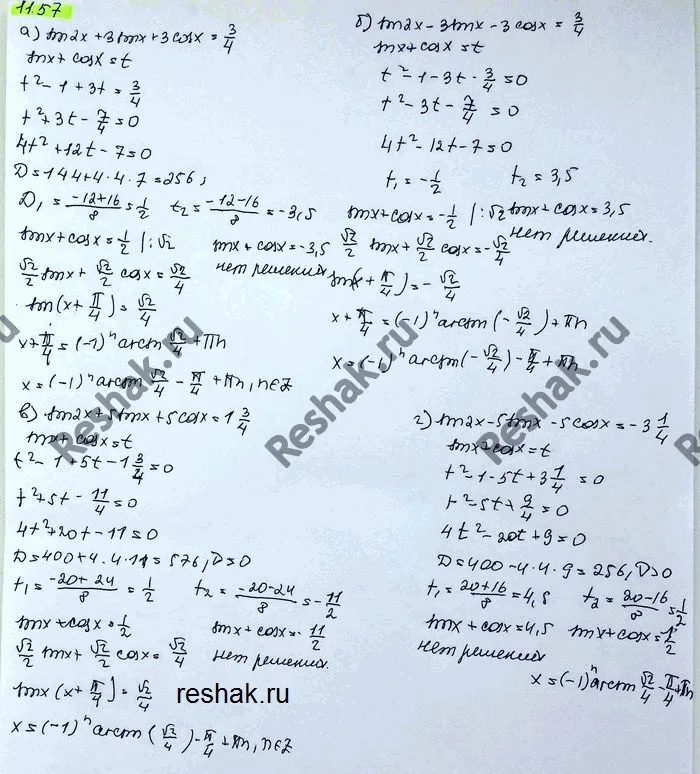 11.57
а) sin2x + 3sinx + 3cosx = 3/4
sinx + cosx = t
t² - 1 + 3t = 3/4
t² + 3t - 7/4 = 0
4t² + 12t - 7 = 0
D = 144 + 4·4·7 = 256;
D₁ = (-12+16)/8 = 1/2  t₂ = (-12-16)/8 = -3,5
sinx + cosx = 1/2 |:√2  sinx + cosx = -3,5
нет решений
√2/2 sinx + √2/2 cosx = √2/4
sin(x + π/4) = √2/4
x + π/4 = (-1)ⁿ arcsin √2/4 + πn
x = (-1)ⁿ arcsin √2/4 - π/4 + πn, n∈Z
б) sin2x - 3sinx - 3cosx = 3/4
sinx + cosx = t
t² - 1 - 3t - 3/4 = 0
t² - 3t - 7/4 = 0
4t² - 12t - 7 = 0
t₁ = -1/2  t₂ = 3,5
sinx + cosx = -1/2 |:√2  sinx + cosx = 3,5
нет решений.
√2/2 sinx + √2/2 cosx = -√2/4
sin(x + π/4) = -√2/4
x + π/4 = (-1)ⁿ arcsin(-√2/4) + πn
x = (-1)ⁿ arcsin(-√2/4) - π/4 + πn
в) sin2x + 5sinx + 5cosx = 1 3/4
sinx + cosx = t
t² - 1 + 5t - 1 3/4 = 0
t² + 5t - 11/4 = 0
4t² + 20t - 11 = 0
D = 400 + 4·4·11 = 576, D>0
t₁ = (-20+24)/8 = 1/2  t₂ = (-20-24)/8 = -11/2
sinx + cosx = 1/2  sinx + cosx = -11/2
нет решений.
√2/2 sinx + √2/2 cosx = √2/4
sinx (x + π/4) = √2/4
x = (-1)ⁿ arcsin(√2/4) - π/4 + πn, n∈Z
г) sin2x - 5sinx - 5cosx = -3 1/4
sinx + cosx = t
t² - 1 - 5t + 3 1/4 = 0
t² - 5t + 9/4 = 0
4t² - 20t + 9 = 0
D = 400 - 4·4·9 = 256, D>0
t₁ = (20+16)/8 = 4,5  t₂ = (20-16)/8 = 1/2
sinx + cosx = 4,5  sinx + cosx = 1/2
нет решений
x = (-1)ⁿ arcsin √2/4 - π/4 + πn
Reshak.ru
Reshak.ru
Reshak.ru
reshak.ru